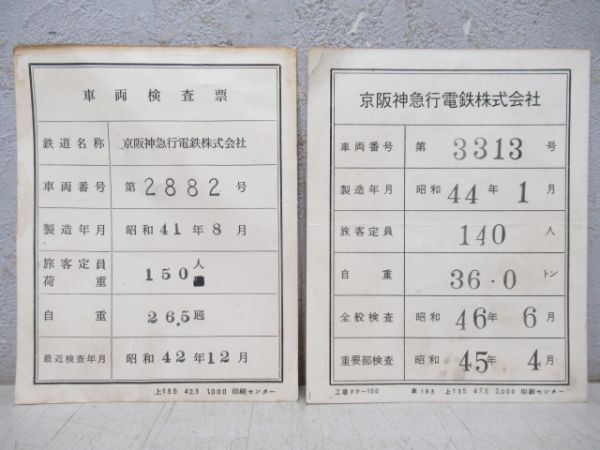 車両検査票
鉄道名称 京阪神急行電鉄株式会社
車両番号 第 2882 号
製造年月 昭和 41 年 8 月
旅客定員 150 人
荷重
自重 26.5
最近検査年月 昭和 42 年 12 月
上155 42.5 1,000 印刷センター
京阪神急行電鉄株式会社
車両番号 第 3313 号
製造年月 昭和 44 年 1 月
旅客定員 140 人
自重 36.0 トン
全般検査 昭和 46 年 6 月
重要部検査 昭和 45 年 4 月
車183 上155 47.5 2,000 印刷センター